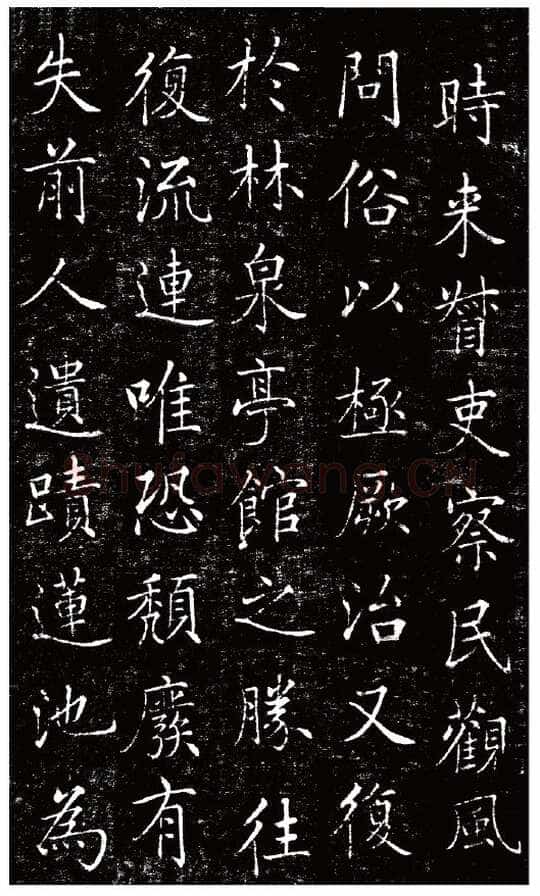 時来督吏察民觀風
問俗以極厥治又復
於林泉亭館之勝往
復流連唯恐頹廢有
失前人遺蹟蓮池為
Shufawang.CN